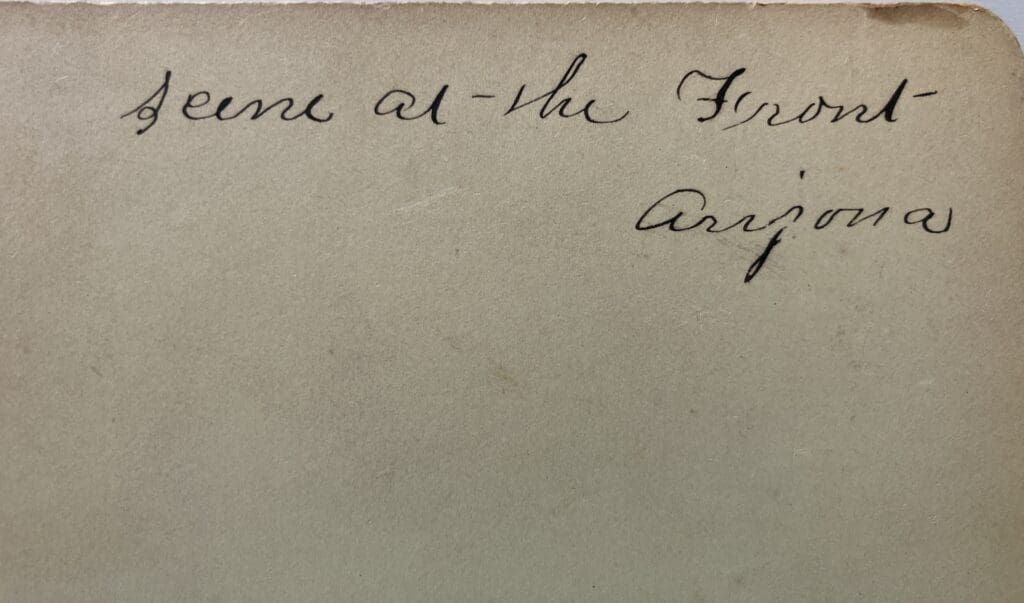 Scene at the Front
Arizona